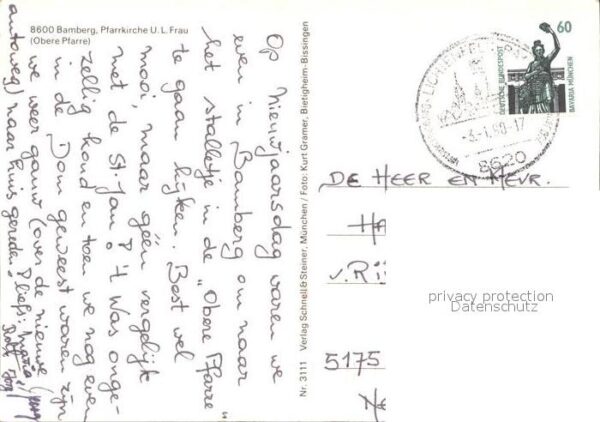 8600 Bamberg, Pfarrkirche U. L. Frau
(Obere Pfarre)
Op Nieuwjaarsdag waren we
even in Bamberg om naar
het stalletje in de "Obere Pfarre"
te gaan kijken. Best wel
mooi, maar géén vergelijk
met de St. Jan! 't Was onge-
zellig koud en toen we nog even
in de Dom geweest waren zijn
we weer gauw (over de nieuwe
autoweg) naar huis gereden.
Nr. 3111 Verlag Schnell & Steiner, München / Foto: Kurt Gramer, Bietigheim-Bissingen
60
DEUTSCHE BUNDESPOST
BAVARIA MÜNCHEN
-3.-1.90-17
8620
DE HEER EN MEVR.
5175
privacy protection
Datenschutz